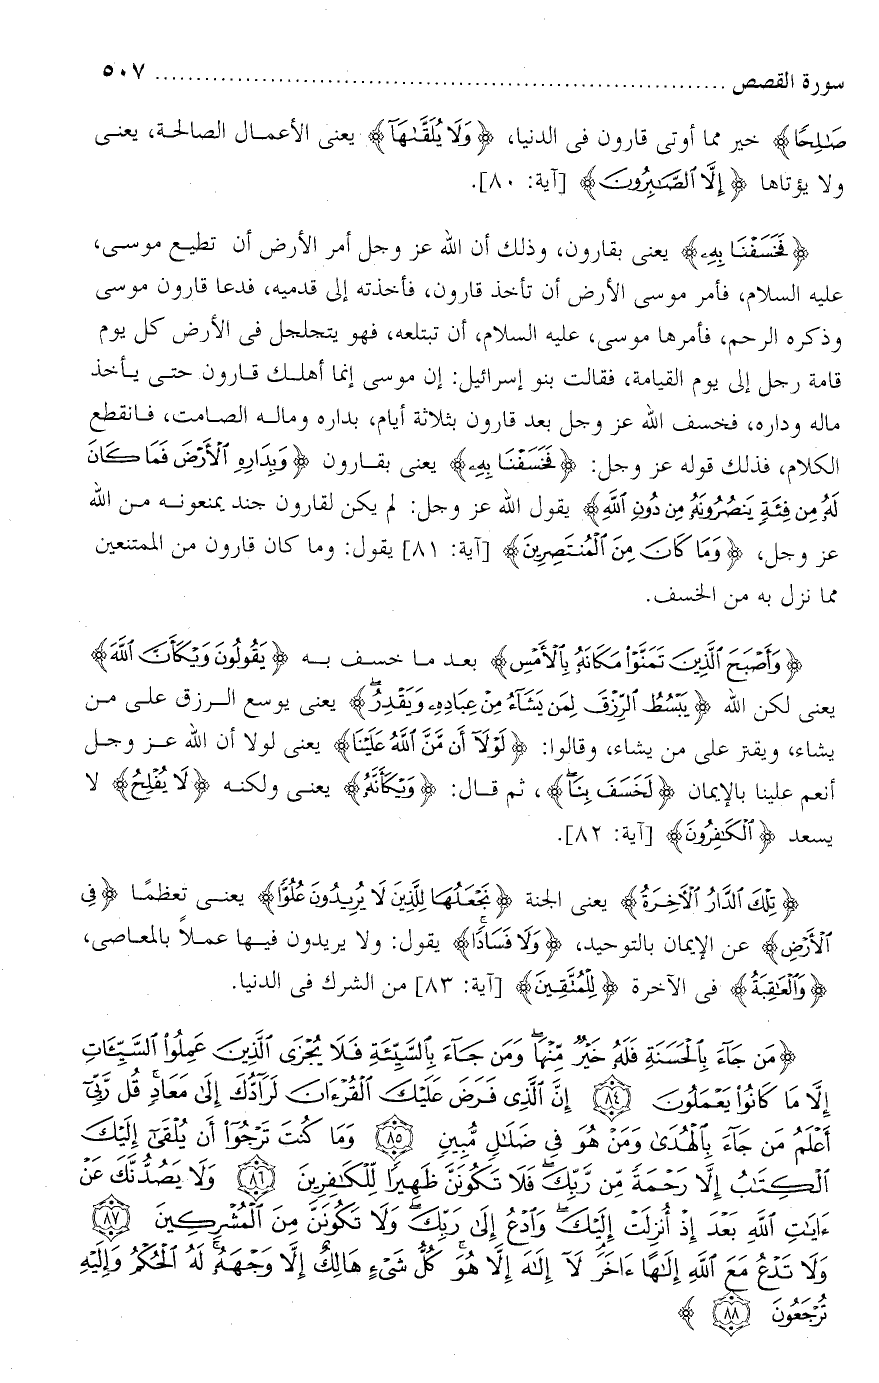 سورة القصص ........................................................................ ٥٠٧
صَٰلِحًا﴾ خير مما أوتى قارون فى الدنيا، ﴿وَلَا يُلَقَّىٰهَآ﴾ يعنى الأعمال الصالحة، يعنى
ولا يؤتاها ﴿إِلَّا ٱلصَّٰبِرُونَ﴾ [آية: ٨٠].
﴿فَخَسَفْنَا بِهِۦ﴾ يعنى بقارون، وذلك أن الله عز وجل أمر الأرض أن تطيع موسى،
عليه السلام، فأمر موسى الأرض أن تأخذ قارون، فأخذته إلى قدميه، فدعا قارون موسى
وذكره الرحم، فأمرها موسى، عليه السلام، أن تبتلعه، فهو يتجلجل فى الأرض كل يوم
قامة رجل إلى يوم القيامة، فقالت بنو إسرائيل: إن موسى إنما أهلك قارون حتى يأخذ
ماله وداره، فخسف الله عز وجل بعد قارون بثلاثة أيام، بداره وماله الصامت، فانقطع
الكلام، فذلك قوله عز وجل: ﴿فَخَسَفْنَا بِهِۦ﴾ يعنى بقارون ﴿وَبِدَارِهِ ٱلْأَرْضَ فَمَا كَانَ
لَهُۥ مِن فِئَةٍ يَنصُرُونَهُۥ مِن دُونِ ٱللَّهِ﴾ يقول الله عز وجل: لم يكن لقارون جند يمنعونه من الله
عز وجل، ﴿وَمَا كَانَ مِنَ ٱلْمُنتَصِرِينَ﴾ [آية: ٨١] يقول: وما كان قارون من الممتنعين
مما نزل به من الخسف.
﴿وَأَصْبَحَ ٱلَّذِينَ تَمَنَّوْا۟ مَكَانَهُۥ بِٱلْأَمْسِ﴾ بعد ما خسف به ﴿يَقُولُونَ وَيْكَأَنَّ ٱللَّهَ﴾
يعنى لكن الله ﴿يَبْسُطُ ٱلرِّزْقَ لِمَن يَشَآءُ مِنْ عِبَادِهِۦ وَيَقْدِرُ ۖ﴾ يعنى يوسع الرزق على من
يشاء، ويقتر على من يشاء، وقالوا: ﴿لَوْلَآ أَن مَّنَّ ٱللَّهُ عَلَيْنَا﴾ يعنى لولا أن الله عز وجل
أنعم علينا بالإيمان ﴿لَخَسَفَ بِنَا ۖ﴾، ثم قال: ﴿وَيْكَأَنَّهُۥ﴾ يعنى ولكنه ﴿لَا يُفْلِحُ﴾ لا
يسعد ﴿ٱلْكَٰفِرُونَ﴾ [آية: ٨٢].
﴿تِلْكَ ٱلدَّارُ ٱلْـَٔاخِرَةُ﴾ يعنى الجنة ﴿نَجْعَلُهَا لِلَّذِينَ لَا يُرِيدُونَ عُلُوًّا﴾ يعنى تعظمًا ﴿فِى
ٱلْأَرْضِ﴾ عن الإيمان بالتوحيد، ﴿وَلَا فَسَادًا ۚ﴾ يقول: ولا يريدون فيها عملاً بالمعاصى،
﴿وَٱلْعَٰقِبَةُ﴾ فى الآخرة ﴿لِلْمُتَّقِينَ﴾ [آية: ٨٣] من الشرك فى الدنيا.
﴿مَن جَآءَ بِٱلْحَسَنَةِ فَلَهُۥ خَيْرٌ مِّنْهَا ۖ وَمَن جَآءَ بِٱلسَّيِّئَةِ فَلَا يُجْزَى ٱلَّذِينَ عَمِلُوا۟ ٱلسَّيِّـَٔاتِ
إِلَّا مَا كَانُوا۟ يَعْمَلُونَ ٨٤ إِنَّ ٱلَّذِى فَرَضَ عَلَيْكَ ٱلْقُرْءَانَ لَرَآدُّكَ إِلَىٰ مَعَادٍ ۚ قُل رَّبِّىٓ
أَعْلَمُ مَن جَآءَ بِٱلْهُدَىٰ وَمَنْ هُوَ فِى ضَلَٰلٍ مُّبِينٍ ٨٥ وَمَا كُنتَ تَرْجُوٓا۟ أَن يُلْقَىٰٓ إِلَيْكَ
ٱلْكِتَٰبُ إِلَّا رَحْمَةً مِّن رَّبِّكَ ۖ فَلَا تَكُونَنَّ ظَهِيرًا لِّلْكَٰفِرِينَ ٨٦ وَلَا يَصُدُّنَّكَ عَنْ
ءَايَٰتِ ٱللَّهِ بَعْدَ إِذْ أُنزِلَتْ إِلَيْكَ ۖ وَٱدْعُ إِلَىٰ رَبِّكَ ۖ وَلَا تَكُونَنَّ مِنَ ٱلْمُشْرِكِينَ ٨٧
وَلَا تَدْعُ مَعَ ٱللَّهِ إِلَٰهًا ءَاخَرَ ۘ لَآ إِلَٰهَ إِلَّا هُوَ ۚ كُلُّ شَىْءٍ هَالِكٌ إِلَّا وَجْهَهُۥ ۚ لَهُ ٱلْحُكْمُ وَإِلَيْهِ
تُرْجَعُونَ ٨٨﴾